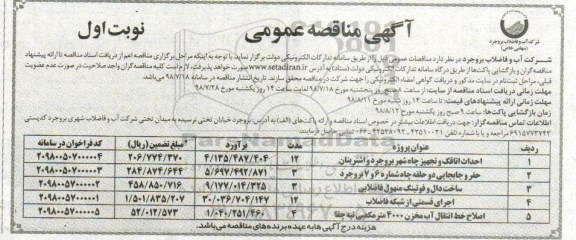 آگهی مناقصه عمومی
نوبت اول
شرکت آب و فاضلاب بروجرد
(سهامی خاص)
شرکت آب و فاضلاب بروجرد در نظر دارد مناقصات عمومی ذیل را از طریق سامانه تدارکات الکترونیکی دولت برگزار نماید. با توجه به اینکه مراحل برگزاری مناقصه اعم از دریافت اسناد مناقصه تا ارائه پیشنهاد
مناقصه گران و بازگشایی پاکت ها از طریق درگاه سامانه تدارکات الکترونیکی دولت (ستاد) به آدرس www.setadiran.ir صورت خواهد پذیرفت، لازم است کلیه مناقصه گران واجد صلاحیت در صورت عدم عضویت
قبلی، مراحل ثبت‌نام در سایت مذکور و دریافت گواهی امضاء الکترونیکی را جهت شرکت در مناقصه محقق سازند. تاریخ انتشار مناقصه در سامانه ۹۸/۷/۱۸ می‌باشد.
مهلت زمانی دریافت اسناد مناقصه از سایت: از ساعت ۸ صبح روز پنجشنبه مورخ ۹۸/۷/۱۸ لغایت ساعت ۱۴ روز یکشنبه مورخ ۹۸/۷/۲۸
مهلت زمانی ارائه پیشنهادهای قیمت: تا ساعت ۱۴ روز شنبه مورخ ۹۸/۸/۱۱
زمان بازگشایی پاکت ها: ساعت ۹ صبح روز یکشنبه مورخ ۹۸/۸/۱۲
اطلاعات تماس مناقصه گزار: جهت دریافت اطلاعات بیشتر در خصوص اسناد مناقصه و ارائه پاکت های (الف) به آدرس: بروجرد خیابان تختی نرسیده به میدان تختی شرکت آب و فاضلاب شهری بروجرد کدپستی
۶۹۱۵۷۷۳۷۴۳ مراجعه و یا با شماره تلفن تماس حاصل فرمایند.
ردیف عنوان پروژه مدت برآورد *مبلغ تضمین (ریال) کد فراخوان در سامانه
۱ احداث اتاقک و تجهیز چاه شهر بروجرد و اشترینان ۱۲ ۴/۱۳۵/۴۸۷/۴۰۴ ۲۰۶/۷۷۴/۳۷۰ ۲۰۹۸۰۰۵۷۰۰۰۰۰۴
۲ حفر و جابجایی دو حلقه چاه شماره ۶ و ۷ بروجرد ۳ ۵/۶۹۷/۴۹۲/۸۷۱ ۲۸۴/۸۷۴/۶۴۴ ۲۰۹۸۰۰۵۷۰۰۰۰۰۳
۳ ساخت دال و فوتینگ منهول فاضلابی ۳ ۹/۱۷۷/۰۱۴/۳۲۵ ۴۵۸/۸۵۰/۷۱۶ ۲۰۹۸۰۰۵۷۰۰۰۰۰۲
۴ اجرای قسمتی از شبکه فاضلاب ۱۲ ۳۰/۰۳۶/۷۰۴/۱۴۷ ۱/۵۰۱/۸۳۵/۲۰۷ ۲۰۹۸۰۰۵۷۰۰۰۰۰۱
۵ اصلاح خط انتقال آب مخزن ۴۰۰۰ متر مکعبی تپه چقا ۴ ۱/۰۴۰/۲۵۱/۴۶۰ ۵۲/۰۱۲/۵۷۳ ۲۰۹۸۰۰۵۷۰۰۰۰۰۵
هزینه درج آگهی ها به عهده برنده‌های مناقصه می‌باشد.